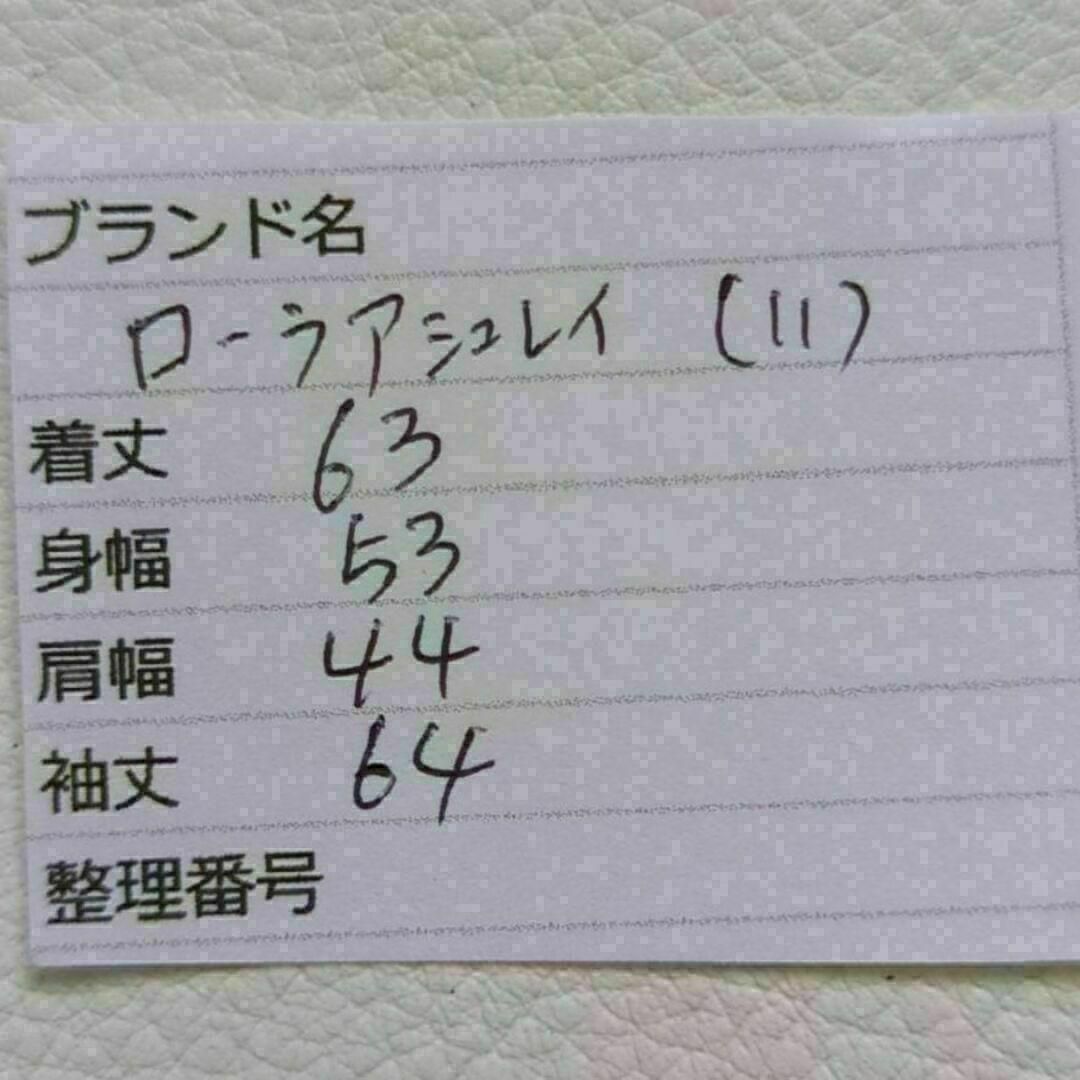 ブランド名
ローラアシュレイ (11)
着丈 63
身幅 53
肩幅 44
袖丈 64
整理番号